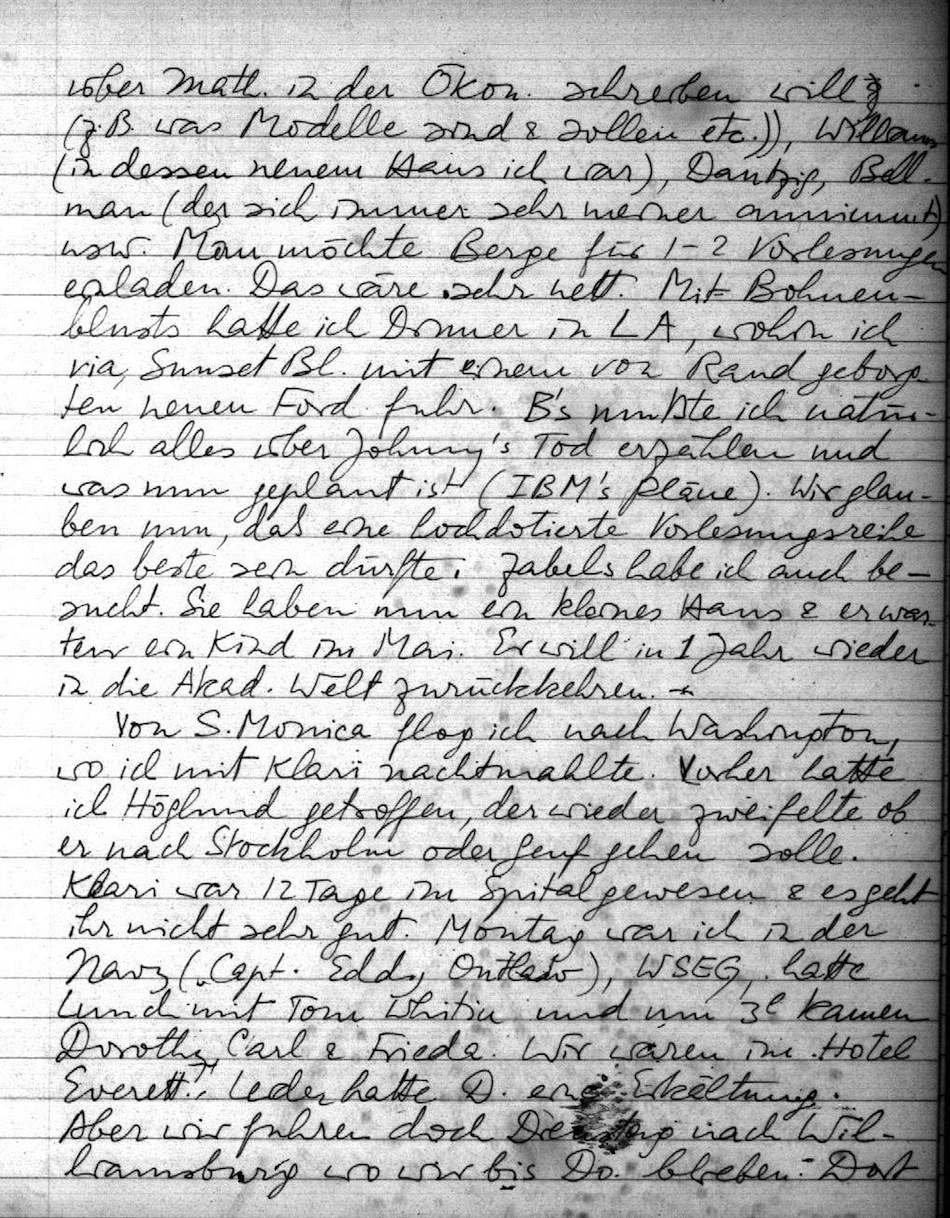 über Math. in der Ökon. schreiben will
(z.B. was Modelle sind & sollen etc.)), Williams
(in dessen neuem Haus ich war), Dantzig, Bell-
man (der sich immer sehr meiner annimmt)
usw. Man möchte Berge für 1-2 Vorlesungen
einladen. Das wäre sehr nett. Mit Bohnen-
blusts hatte ich Dinner in LA, wohin ich
via Sunset Bl. mit einem von Rand geborg-
ten neuen Ford fuhr. B's mußte ich natür-
lich alles über Johnny's Tod erzählen und
was nun geplant ist (IBM's Pläne). Wir glau-
ben nun, daß eine hochdotierte Vorlesungsreihe
das beste sein dürfte. Zabels habe ich auch be-
sucht. Sie haben nun ein kleines Haus & erwar-
ten ein Kind im Mai. Er will in 1 Jahr wieder
in die Akad. Welt zurückkehren. –
Von S. Monica flog ich nach Washington,
wo ich mit Klari nachtmahlte. Vorher hatte
ich Höglund getroffen, der wieder zweifelte ob
er nach Stockholm oder Genf gehen solle.
Klari war 12 Tage im Spital gewesen & es geht
ihr nicht sehr gut. Montag war ich in der
Navy (Capt. Eddy, Outlaw), WSEG, hatte
Lunch mit Tom Whitin und um 3h kamen
Dorothy, Carl & Frieda. Wir waren im Hotel
Everett. Leider hatte D. eine Erkältung.
Aber wir fuhren doch Dienstag nach Wil-
liamsburg wo wir bis Do. blieben. Dort